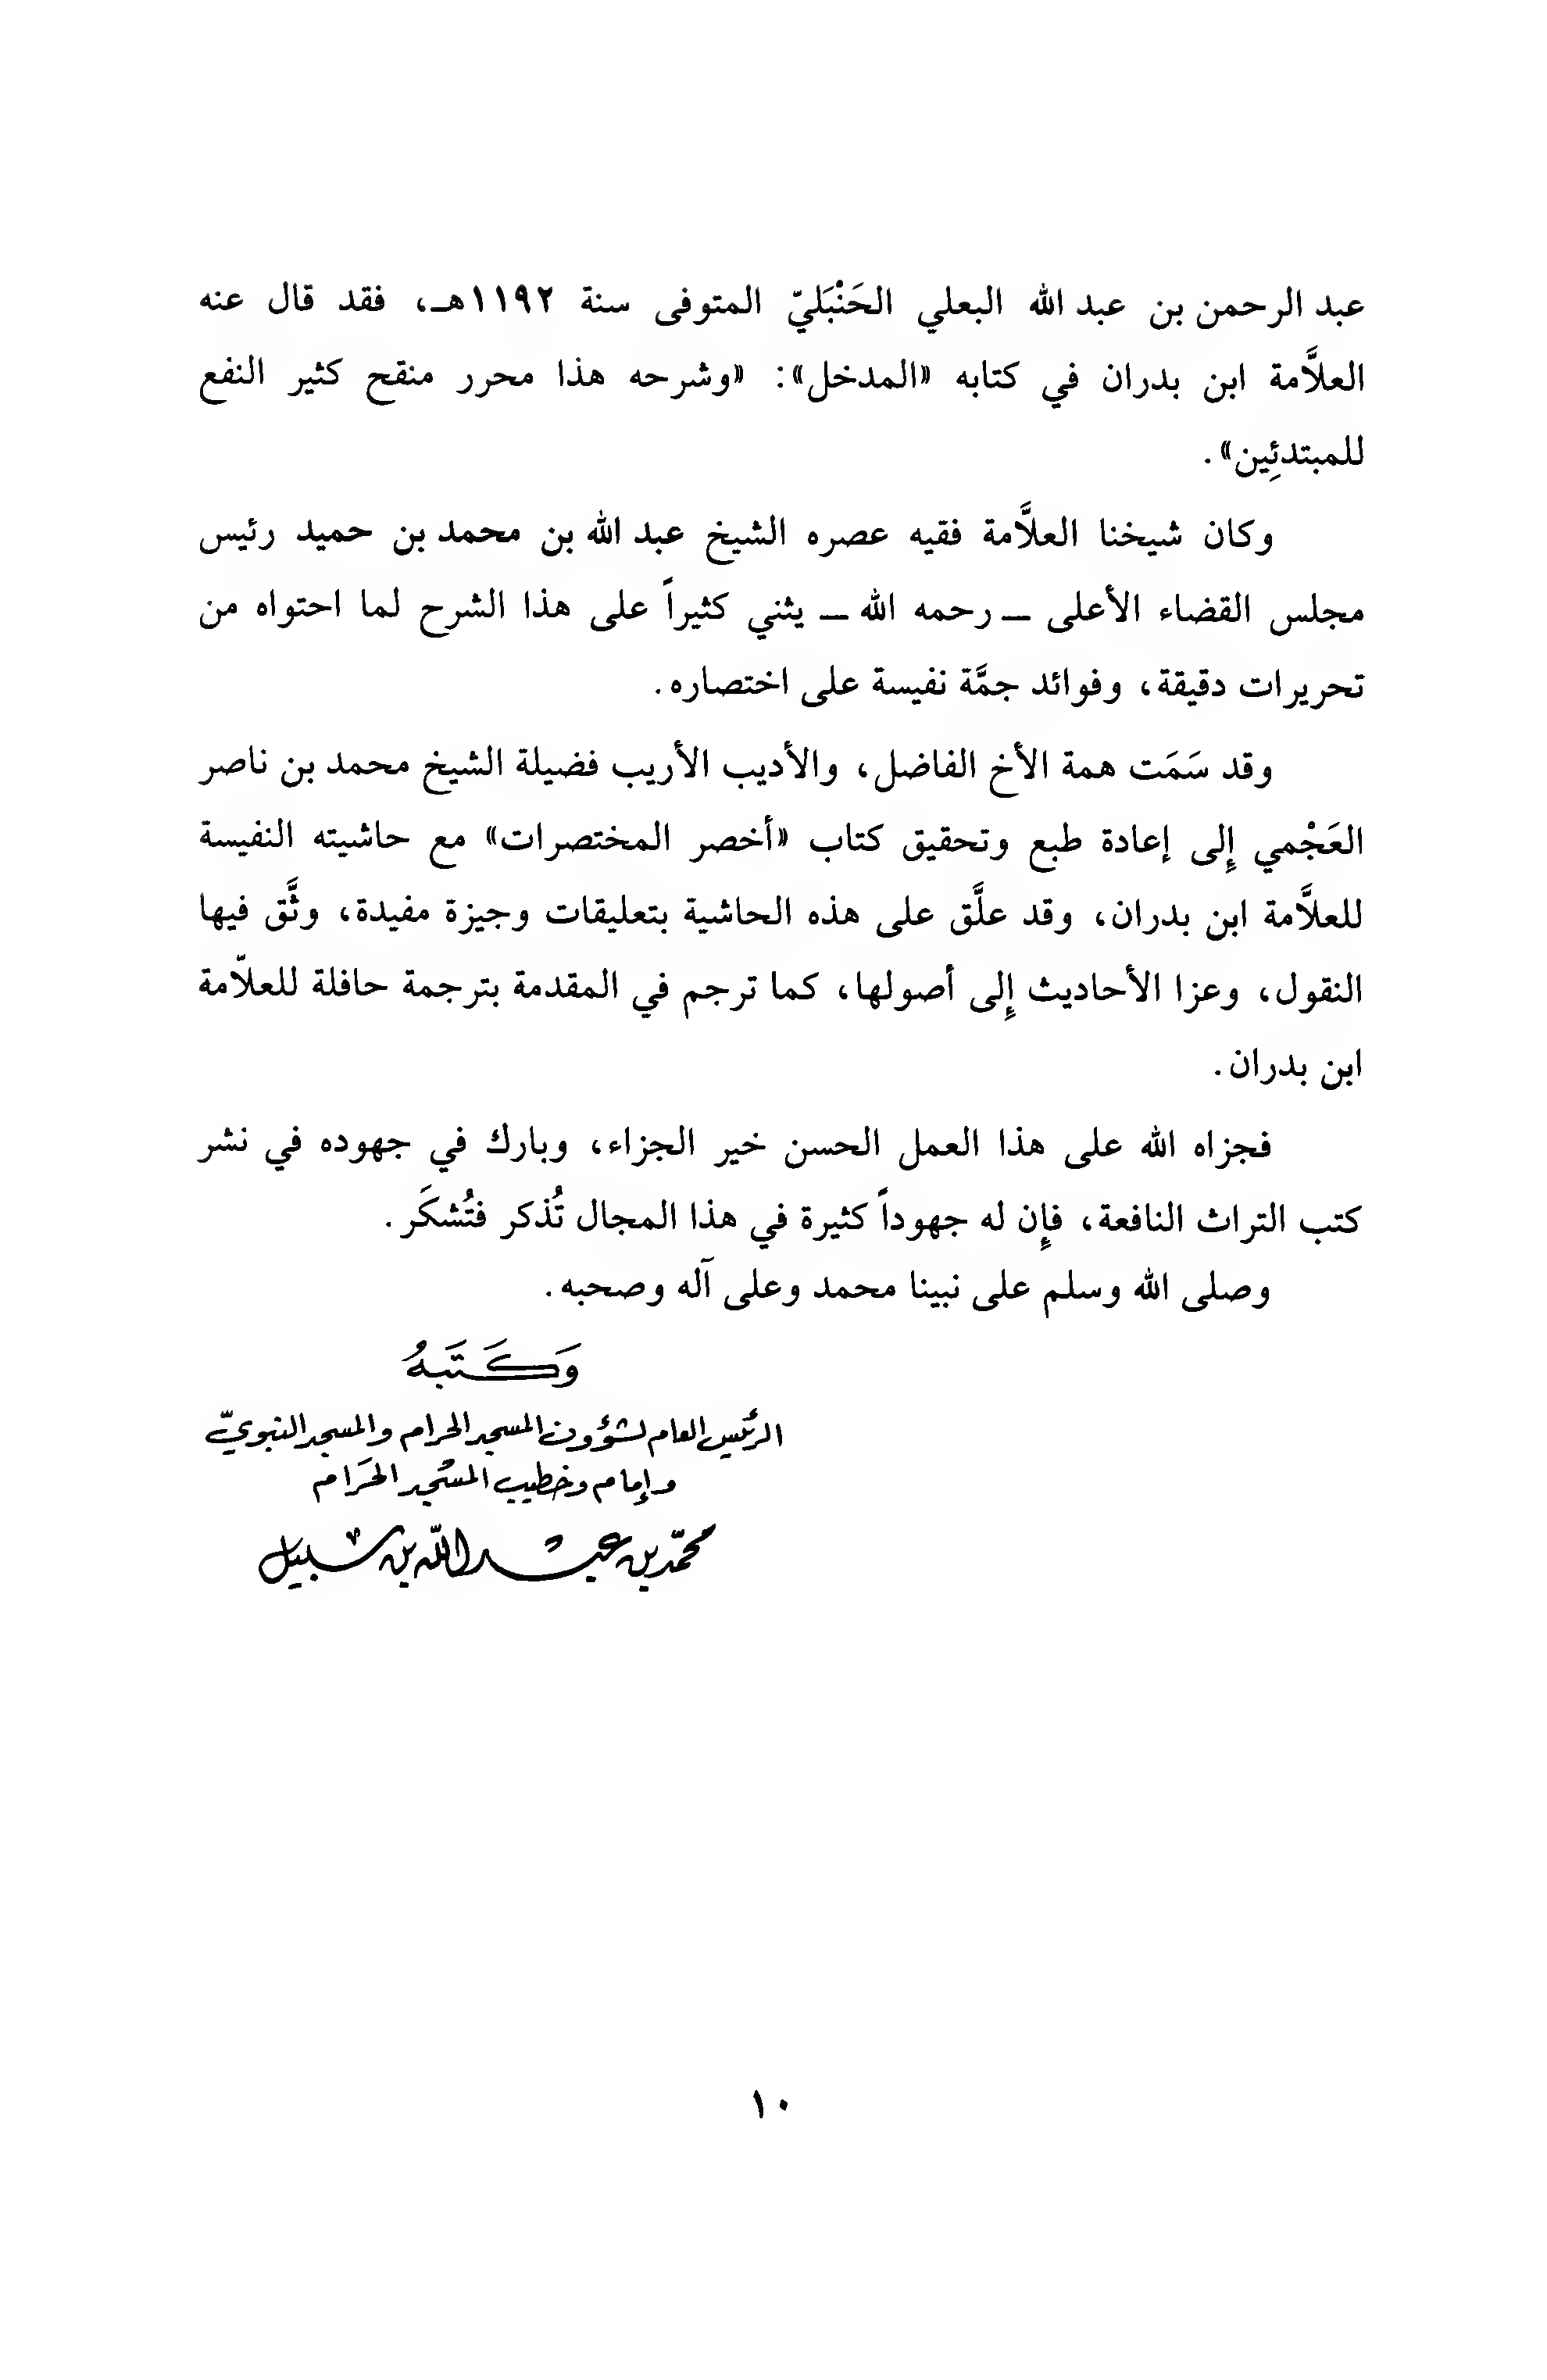 عبد الرحمن بن عبد الله البعلي الحَنْبَليّ المتوفى سنة ١١٩٢هـ، فقد قال عنه
العلاَّمة ابن بدران في كتابه «المدخل»: «وشرحه هذا محرر منقح كثير النفع
للمبتدئِين».
وكان شيخنا العلاَّمة فقيه عصره الشيخ عبد الله بن محمد بن حميد رئيس
مجلس القضاء الأعلى ــ رحمه الله ــ يثني كثيراً على هذا الشرح لما احتواه من
تحريرات دقيقة، وفوائد جمَّة نفيسة على اختصاره.
وقد سَمَت همة الأخ الفاضل، والأديب الأريب فضيلة الشيخ محمد بن ناصر
العَجْمي إِلى إعادة طبع وتحقيق كتاب «أخصر المختصرات» مع حاشيته النفيسة
للعلاَّمة ابن بدران، وقد علَّق على هذه الحاشية بتعليقات وجيزة مفيدة، وثَّق فيها
النقول، وعزا الأحاديث إِلى أصولها، كما ترجم في المقدمة بترجمة حافلة للعلاّمة
ابن بدران.
فجزاه الله على هذا العمل الحسن خير الجزاء، وبارك في جهوده في نشر
كتب التراث النافعة، فإِن له جهوداً كثيرة في هذا المجال تُذكر فتُشكَر.
وصلى الله وسلم على نبينا محمد وعلى آله وصحبه.
وَكَتَبهُ
الرئيس العام لشؤون المسجد الحرام والمسجد النبويّ
وإمام وخطيب المسْجد الحَرام
محمّد بن عبد الله بن سبيل
١٠